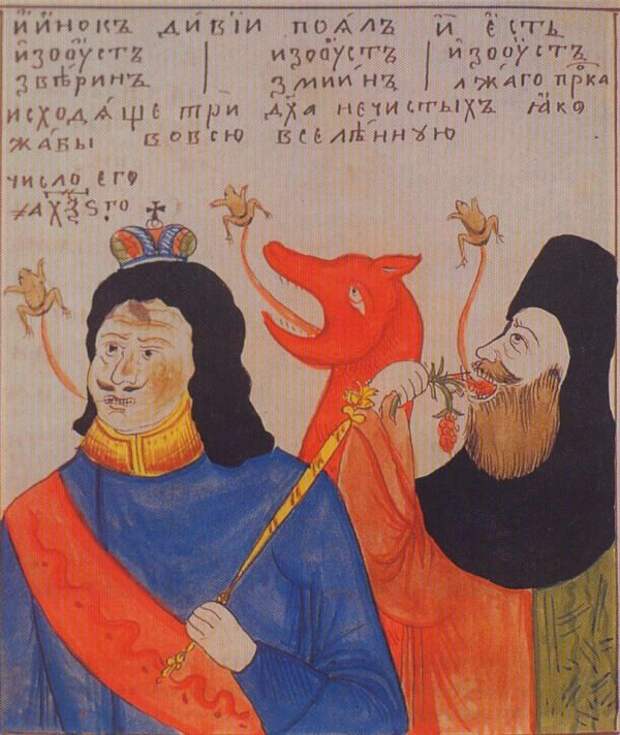 и҆ и҆нокъ дивїи поѧ́лъ и҆ єсть
и҆зоѹстъ | и҆зоѹстъ | и҆зоѹстъ
звѣ́ринъ | змии́нъ | лжаго пр҃ка
исходѧ́ще три дх҃а нечистыхъ ꙗко
жа́бы вовсю вселе́нную
число его
҂ахѯѕ го